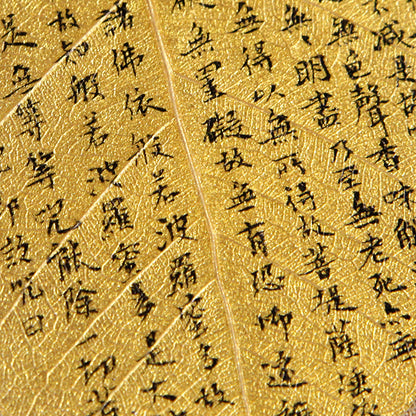 減是故
無色聲香味觸
無明盡乃至無老死亦無
無得以無所得故菩提薩埵
無罣礙故無有恐怖遠
諸佛依般若波羅蜜多故
故知般若波羅蜜多是大
是無等等咒能除一切苦
即說咒曰